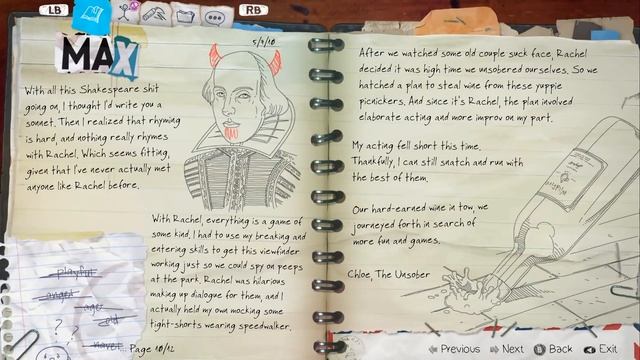 LB
RB
MAX
5/9/10
With all this Shakespeare shit
going on, I thought I'd write you a
sonnet. Then I realized that rhyming
is hard, and nothing really rhymes
with Rachel. Which seems fitting,
given that I've never actually met
anyone like Rachel before.
With Rachel, everything is a game of
some kind. I had to use my breaking and
entering skills to get this viewfinder
working just so we could spy on peeps
at the park. Rachel was hilarious
making up dialogue for them, and I
actually held my own mocking some
tight-shorts wearing speedwalker.
playful
angel
ages
old
Page 10/12
After we watched some old couple suck face, Rachel
decided it was high time we unsobered ourselves. So we
hatched a plan to steal wine from these yuppie
picnickers. And since it's Rachel, the plan involved
elaborate acting and more improv on my part.
My acting fell short this time.
Thankfully, I can still snatch and run with
the best of them.
Our hard-earned wine in tow, we
journeyed forth in search of
more fun and games.
Chloe, The Unsober
Previous Next B Back Y Exit